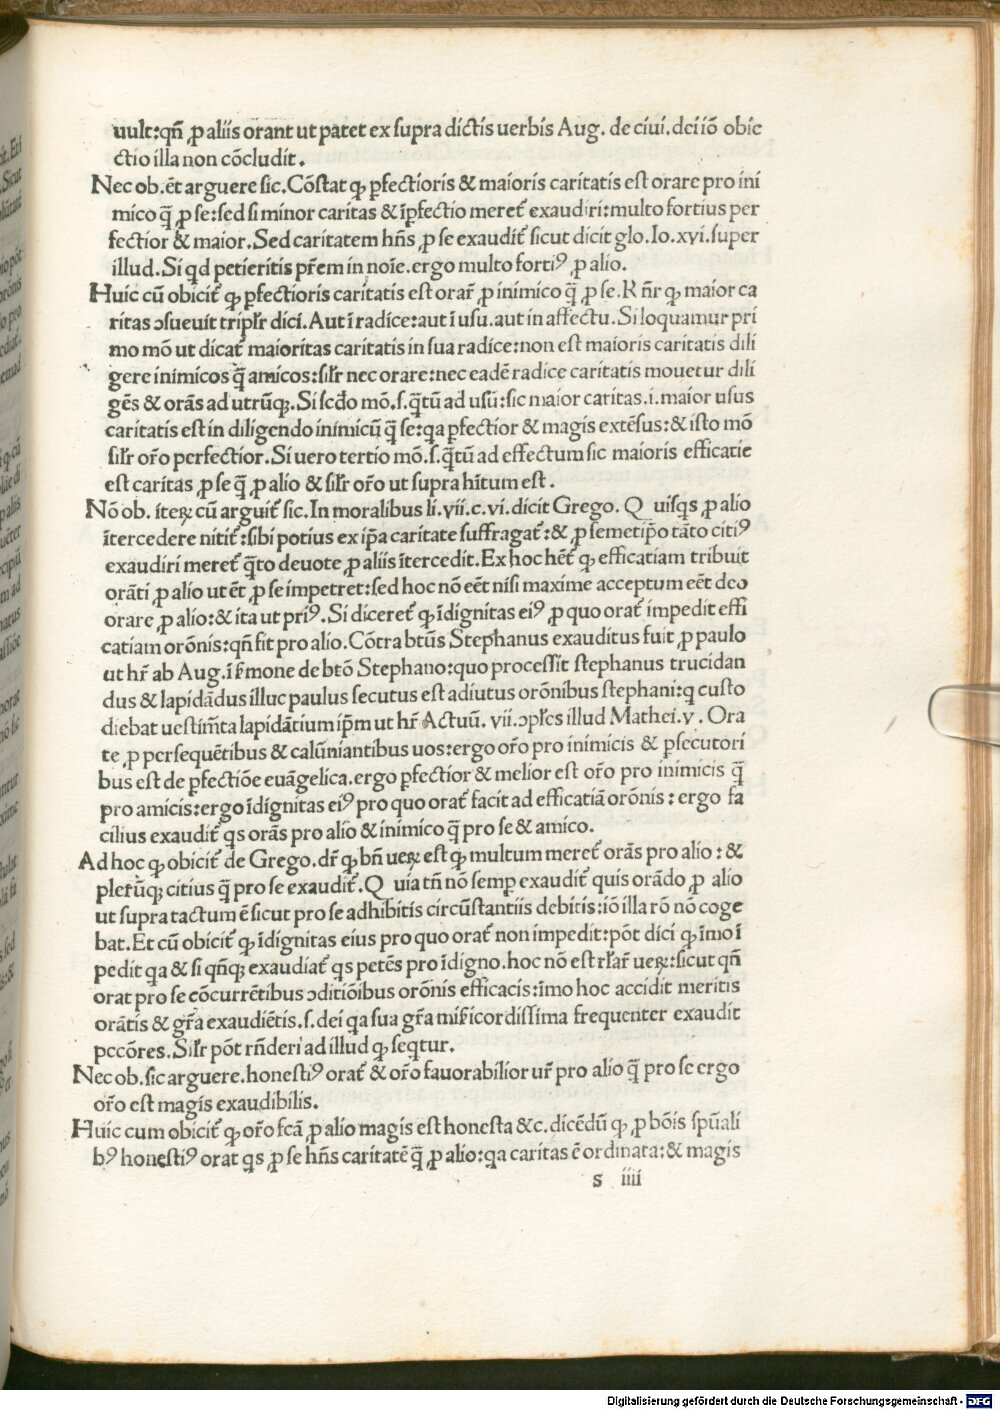 uult:qñ ꝓ aliis orant ut patet ex supra dictis uerbis Aug. de ciui. dei iõ obiec
ctio illa non cõcludit.
Nec ob. ẽt arguere sic. Cõstat ꝙ ꝑfectioris & maioris caritatis est orare pro ini
mico q̃ ꝓ se: sed si minor caritas & ĩꝑfectio meret᷑ exaudiri: multo fortius per
fectior & maior. Sed caritatem hñs ꝓ se exaudit᷑ sicut dicit glo. Io. xvi. super
illud. Si qd petieritis pr̃em in noĩe. ergo multo fortiꝰ ꝓ alio.
Huic cũ obicit᷑ ꝙ ꝑfectioris caritatis est orar̃ ꝓ inimico q̃ ꝓ se. Rñr ꝙ maior ca
ritas ↄsueuit tripl̃r dici. Aut ĩ radice: aut ĩ usu. aut in affectu. Si loquamur pri
mo mõ ut dicat᷑ maioritas caritatis in sua radice: non est maioris caritatis dili
gere inimicos q̃ amicos: sil̃r nec orare: nec eadẽ radice caritatis mouetur dili
gẽs & orãs ad utrũqꝫ. Si scđo mõ. s. q̃tũ ad usũ: sic maior caritas. i. maior usus
caritatis est in diligendo inimicũ q̃ se: qa ꝑfectior & magis extẽsus: & isto mõ
sil̃r or̃o perfectior. Si uero tertio mõ. s. q̃tũ ad effectum sic maioris efficatie
est caritas ꝓ se q̃ ꝓ alio & sil̃r or̃o ut supra hĩtum est.
Nõ ob. iteꝝ cũ arguit᷑ sic. In moralibus li. vii. c. vi. dicit Grego. Q uisqs ꝓ alio
ĩtercedere nitit᷑: sibi potius ex ip̃a caritate suffragat᷑: & ꝓ semetip̃o tãto citiꝰ
exaudiri meret᷑ q̃to deuote ꝓ aliis ĩtercedit. Ex hoc hẽt᷑ ꝙ efficatiam tribuit
orãti ꝓ alio ut ẽt ꝓ se impetret: sed hoc nõ eẽt nisi maxime acceptum eẽt deo
orare ꝓ alio: & ita ut priꝰ. Si diceret᷑ ꝙ ĩdignitas eiꝰ ꝓ quo orat᷑ impedit effi
catiam orõnis: qñ fit pro alio. Cõtra btũs Stephanus exauditus fuit ꝓ paulo
ut hr̃ ab Aug. ĩ ẜmone de btõ Stephano: quo processit stephanus trucidan
dus & lapidãdus illuc paulus secutus est adiutus orõnibus stephani: q custo
diebat uestim̃ta lapidãtium ip̃m ut hr̃ Actuũ. vii. ↄpl̃es illud Mathei. v. Ora
te ꝓ persequẽtibus & calũniantibus uos: ergo or̃o pro inimicis & ꝑsecutori
bus est de ꝑfectiõe euãgelica. ergo ꝑfectior & melior est or̃o pro inimicis q̃
pro amicis: ergo ĩdignitas eiꝰ pro quo orat᷑ facit ad efficatiã orõnis: ergo fa
cilius exaudit᷑ qs orãs pro alio & inimico q̃ pro se & amico.
Ad hoc ꝙ obicit᷑ de Grego. dr̃ ꝙ bñ ueꝝ est ꝙ multum meret᷑ orãs pro alio: &
plerũqꝫ citius q̃ pro se exaudit᷑. Q uia tñ nõ semꝑ exaudit᷑ quis orãdo ꝓ alio
ut supra tactum ẽ sicut pro se adhibitis circũstantiis debitis: iõ illa rõ nõ coge
bat. Et cũ obicit᷑ ꝙ ĩdignitas eius pro quo orat᷑ non impedit: põt dici ꝙ ĩmo ĩ
pedit qa & si qñqꝫ exaudiat᷑ qs petẽs pro ĩdigno. hoc nõ est rl̃ar̃ ueꝝ: sicut qñ
orat pro se cõcurrẽtibus ↄditiõibus orõnis efficacis: ĩmo hoc accidit meritis
orãtis & gr̃a exaudiẽtis. s. dei qa sua gr̃a mĩsicordissima frequenter exaudit
pccõres. Sil̃r põt rñderi ad illud ꝙ seqtur.
Nec ob. sic arguere. honestiꝰ orat᷑ & or̃o fauorabilior ur̃ pro alio q̃ pro se ergo
or̃o est magis exaudibilis.
Huic cum obicit᷑ ꝙ or̃o fcã ꝓ alio magis est honesta &c. dicẽdũ ꝙ ꝓ bõis spũali
bꝰ honestiꝰ orat qs ꝓ se hñs caritatẽ q̃ ꝓ alio: qa caritas ẽ ordinata: & magis
s iiii
Digitalisierung gefördert durch die Deutsche Forschungsgemeinschaft - DFG